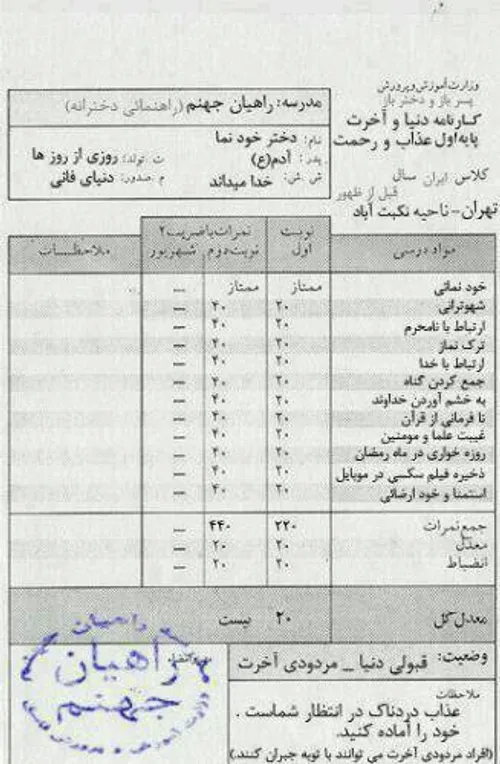 وزارت آموزش و پرورش
پسر باز و دختر باز
کارنامه دنیا و آخرت
پایه اول عذاب و رحمت
کلاس ایران سال
قبل از ظهور
تهران-ناحیه نکبت آباد
مدرسه: راهیان جهنم (راهنمائی دخترانه)
نام: دختر خود نما
پدر: آدم(ع) ت. تولد: روزی از روز ها
ش. ش: خدا میداند م. صدور: دنیای فانی
مواد درسی نوبت اول نمرات با ضریب ۲ نوبت دوم شهریور ملاحظات
خود نمائی ممتاز ممتاز —
شهوترانی ۲۰ ۴۰ —
ارتباط با نامحرم ۲۰ ۴۰ —
ترک نماز ۲۰ ۴۰ —
ارتباط با خدا ۲۰ ۴۰ —
جمع کردن گناه ۲۰ ۴۰ —
به خشم آوردن خداوند ۲۰ ۴۰ —
نا فرمانی از قرآن ۲۰ ۴۰ —
غیبت علما و مومنین ۲۰ ۴۰ —
روزه خواری در ماه رمضان ۲۰ ۴۰ —
ذخیره فیلم سکسی در موبایل ۲۰ ۴۰ —
استمنا و خود ارضائی ۲۰ ۴۰ —
جمع نمرات ۲۲۰ ۴۴۰ —
معدل ۲۰ ۲۰ —
انضباط ۲۰ ۲۰ —
معدل کل ۲۰ بیست
وضعیت: قبولی دنیا _ مردودی آخرت
ملاحظات
عذاب دردناک در انتظار شماست .
خود را آماده کنید.
(افراد مردودی آخرت می توانند با توبه جبران کنند.)
راهیان
راهیان
جهنم